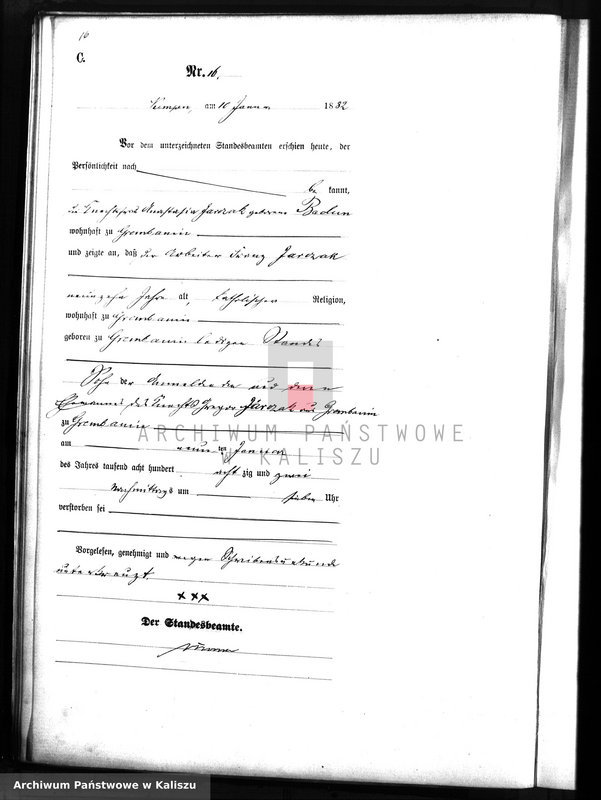 16
C.
Nr. 16.
Kempen, am 10 Januar 1882
Vor dem unterzeichneten Standesbeamten erschien heute, der
Persönlichkeit nach
be kannt,
die Knechtsfrau Anastasia Jarczak geborene Badun
wohnhaft zu Grembanin
und zeigte an, daß der Arbeiter Franz Jarczak
neunzehn Jahre alt, katholischer Religion,
wohnhaft zu Grembanin
geboren zu Grembanin ledigen Standes
Sohn der Anmeldenden und deren
Ehemannes des Knechts Jarczak aus Grembanin
zu Grembanin
am neunten Januar
des Jahres tausend acht hundert achtzig und zwei
Nachmittags um sieben Uhr
verstorben sei
Vorgelesen, genehmigt und wegen Schreibensunkunde
unterkreuzt.
xxx
Der Standesbeamte.
ARCHIWUM PAŃSTWOWE
W KALISZU
Archiwum Państwowe w Kaliszu